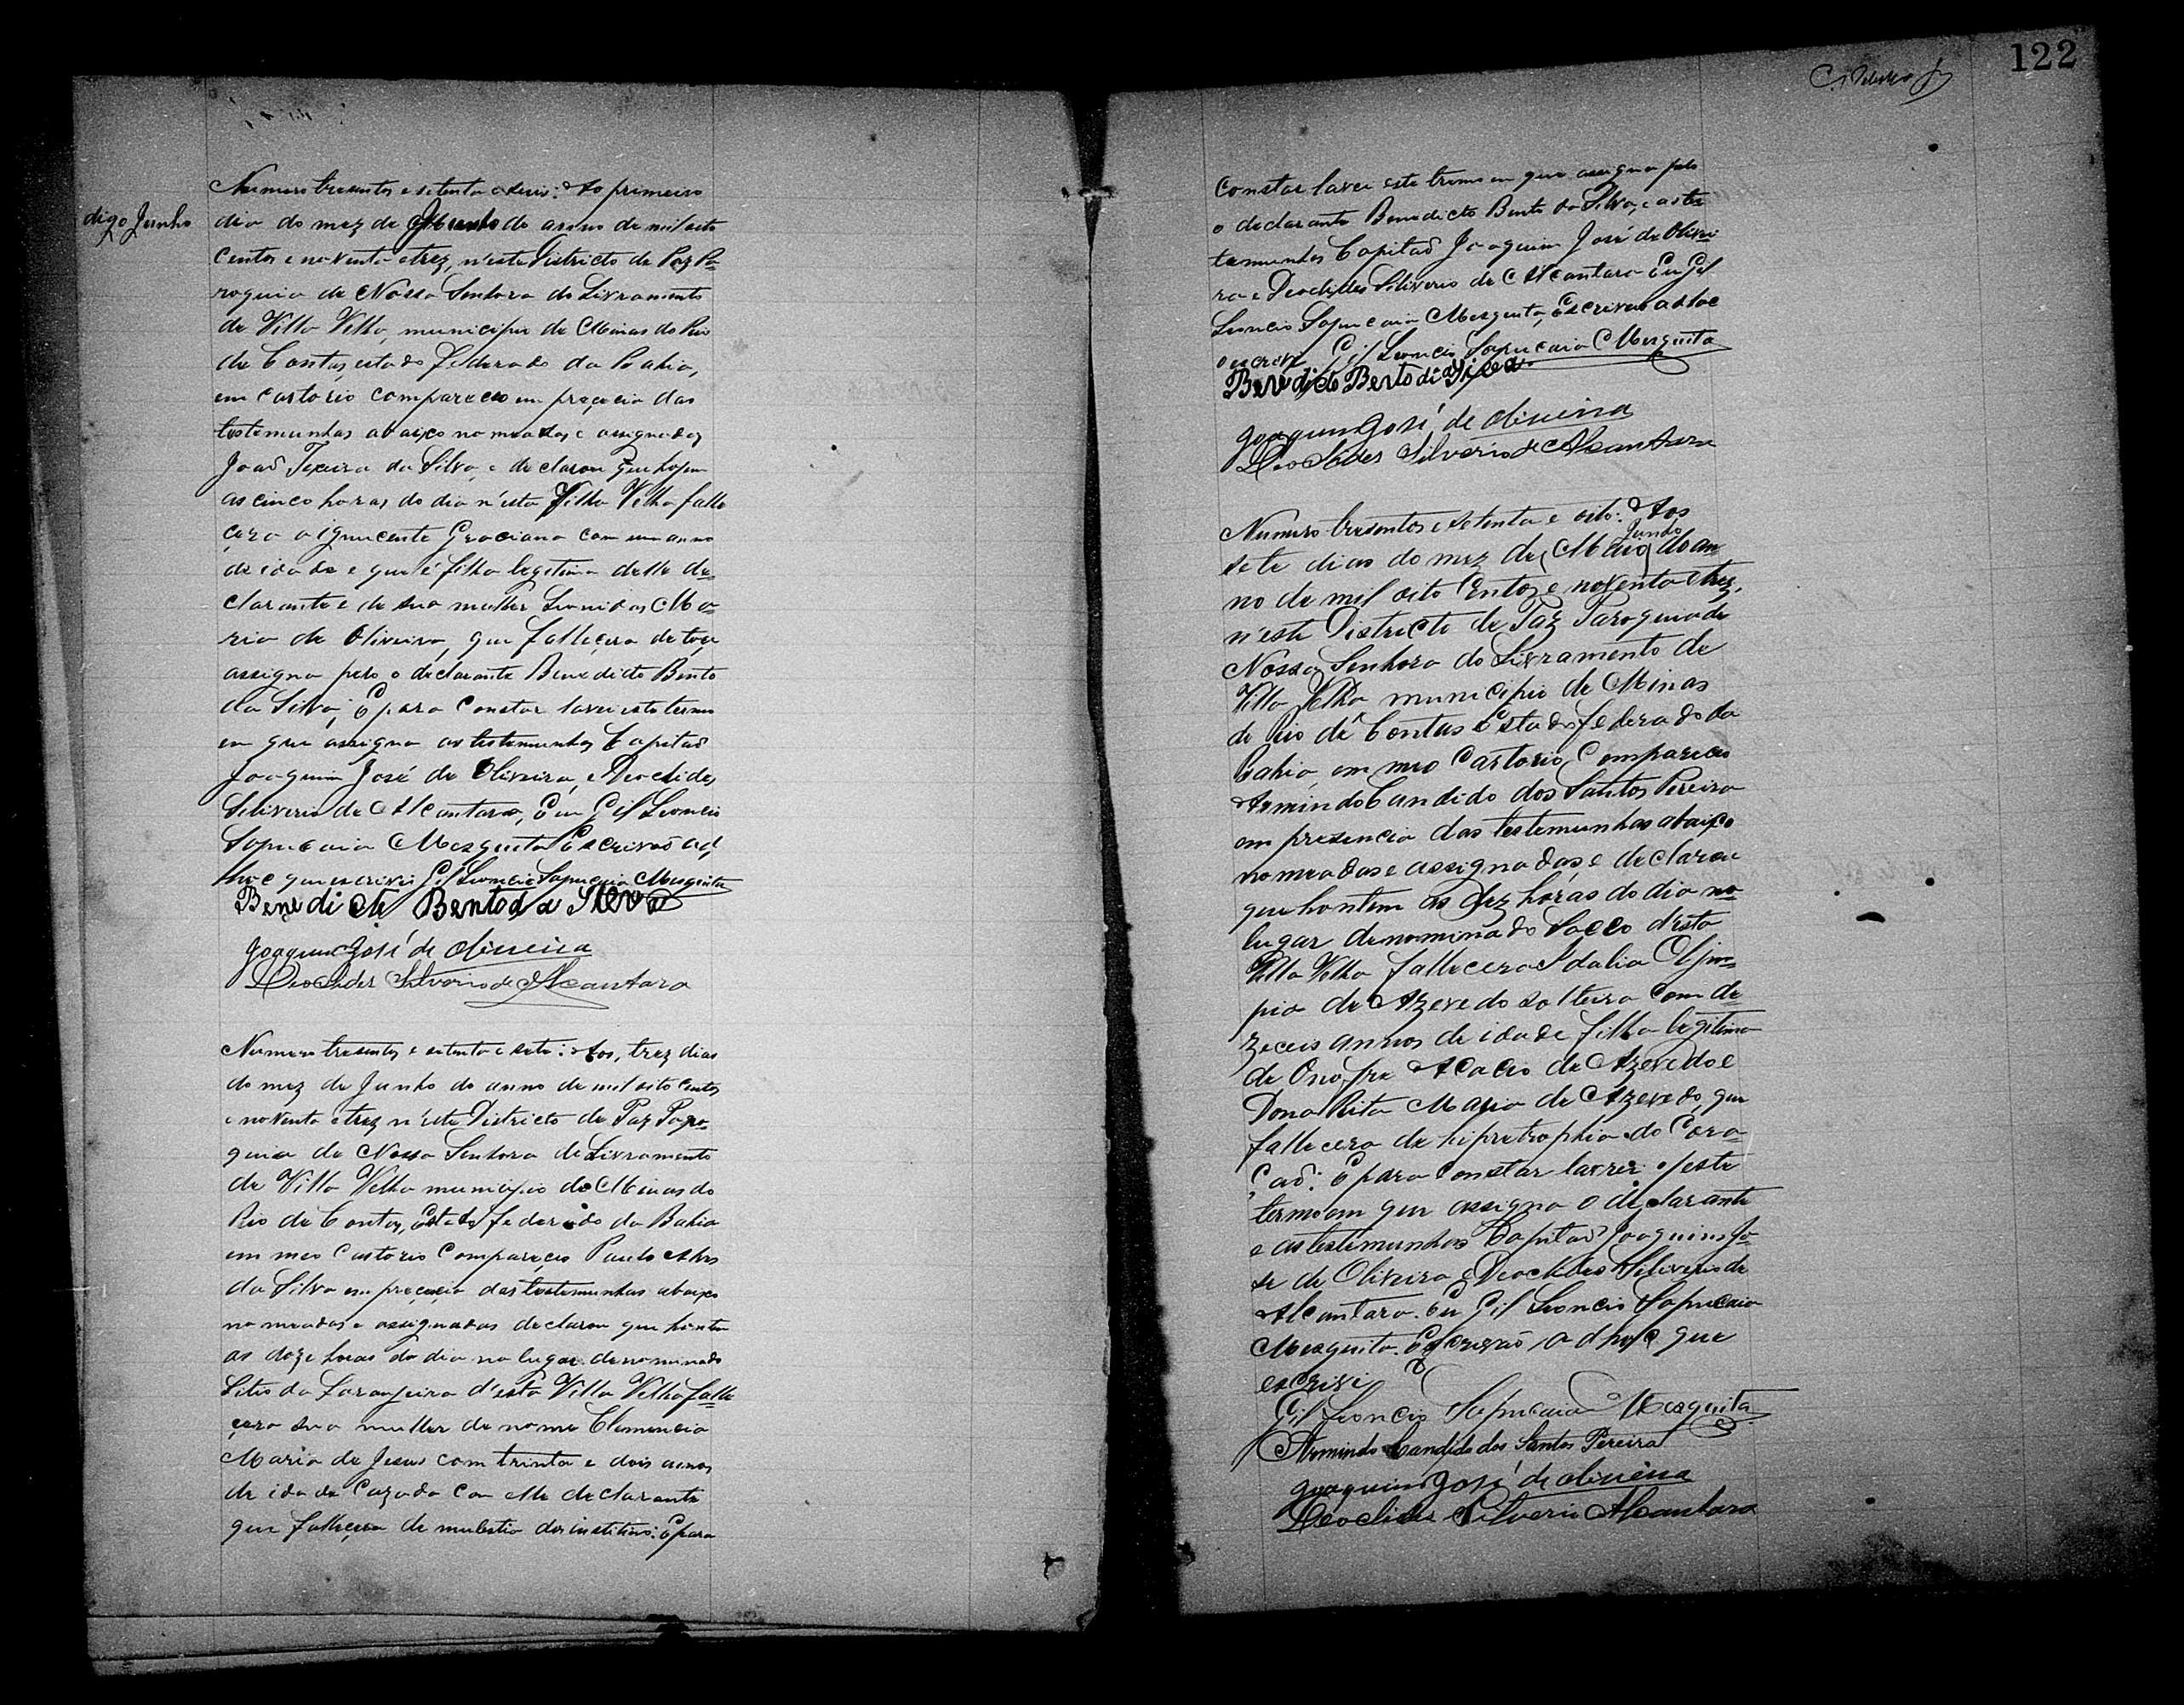 digo Junho
Numero tresentos e setenta e seis: Ao primeiro
dia do mez de Junho do anno de mil oito
centos e noventa e trez, n'este Districto de Paz Pa-
roquia de Nossa Senhora do Livramento
de Villa Velha, municipio de Minas do Rio
de Contas, estado federado da Bahia,
em cartorio compareceo em preçecia das
testemunhas abaixo nomeadas e assignadas
João Texeira da Silva, e declarou que hoje
as cinco horas do dia n'esta Villa Velha falle
çera o ignucente Graciano com um anno
de idade e que é filho legitimo delle de-
clarante e de sua mulher Leonidas Ma-
ria de Oliveira, que falleçera de toçe
assigna pelo o declarante Benedicto Bento
da Silva, E para constar lavrei este termo
em que assigna as testemunhas Capitaõ
Joaquim José de Oliveira, e Deoclides
Siliverio de Alcantara, Eu Gil Leoncio
Sapucaia Mesquita Escrivaõ ad,
hoc que escrivi Gil Leoncio Sapucaia Mesquita
Benedicto Bento da Silva
Joaquim José de Oliveira
Deoclides Silverio de Alcantara
Numero tresentos e setenta e sete: Aos, trez dias
do mez de Junho do anno de mil oito centos
e noventa e trez n'este Districto de Paz Paro-
quia de Nossa Senhora do Livramento
de Villa Velha municipio de Minas do
Rio de Contas, Estado federado da Bahia
em meo Cartorio compareçeo Paulo Alves
da Silva em preçecia das testemunhas abaixo
nomeadas e assignadas declarou que hontem
as doze horas do dia no lugar denominado
Sitio da Laranjeira d'esta Villa Velha falle
çera sua mulher de nome Clemencia
Maria de Jesus com trinta e dois annos
de idade Cazada com elle declarante
que falleçera de mulestia : E para
122
constar lavrei este termo em que assigna pelo
o declarante Benedicto Bento da Silva, e as tes
temunhas Capitaõ Joaquim José de Olivei
ra e Deoclides Siliverio de Alcantara Eu Gil
Leoncio Sapucaia Mesquita, Escrivaõ ad hoc
o escrivi Gil Leoncio Sapucaia Mesquita
Benedicto Bento da Silva
Joaquim José de Oliveira
Deoclides Silverio de Alcantara
Numero tresentos e setenta e oito: Aos
Junho
sete dias do mez de (Maio) do an
no de mil oito centos e noventa e trez,
n'este Districto de Paz Paroquia de
Nossa Senhora do Livramento de
Villa Velha municipio de Minas
do Rio de Contas Estado federado da
Bahia em meo Cartorio, Compareceo
Armindo Candido dos Santos Pereira
em presencia das testemunhas abaixo
nomeadas e assignadas e declarou
que hontem as dez horas do dia no
lugar denominado Sacco desta
Villa Velha fallecera Idalia Olym-
pia de Azevedo solteira com de-
zeceis annos de idade filha legitima
de Onofre Acacio de Azevedo e
Dona Rita Maria de Azevedo, que
fallecera de hipretrophia do Cora-
çaõ: E para constar lavrei o peste
termo em que assigna o declarante
e as testemunhas Capitaõ Joaquim Jo-
se de Oliveira e Deoclides Siliverio de
Alcantara. Eu Gil Leoncio Sapucaia
Mesquita. Escrivaõ, ad hoc que
escrivi
Gil Leoncio Sapucaia Mesquita
Armindo Candido dos Santos Pereira
Joaquim José de Oliveira
Deoclides Silverio Alcantara